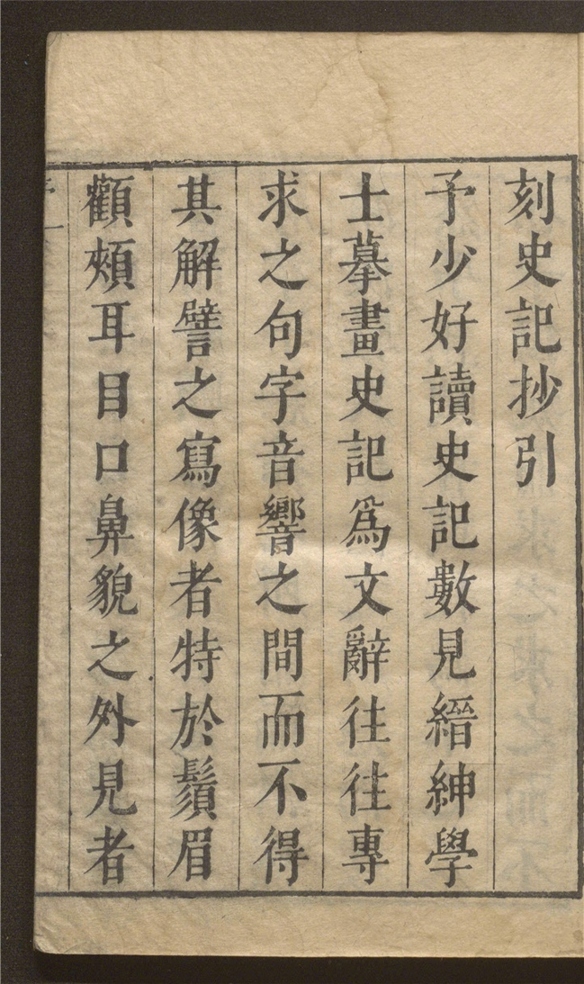 刻史記抄引
予少好讀史記數見縉紳學
士摹畫史記爲文辭往往專
求之句字音響之間而不得
其解譬之寫像者特於鬚眉
顴頰耳目口鼻貌之外見者